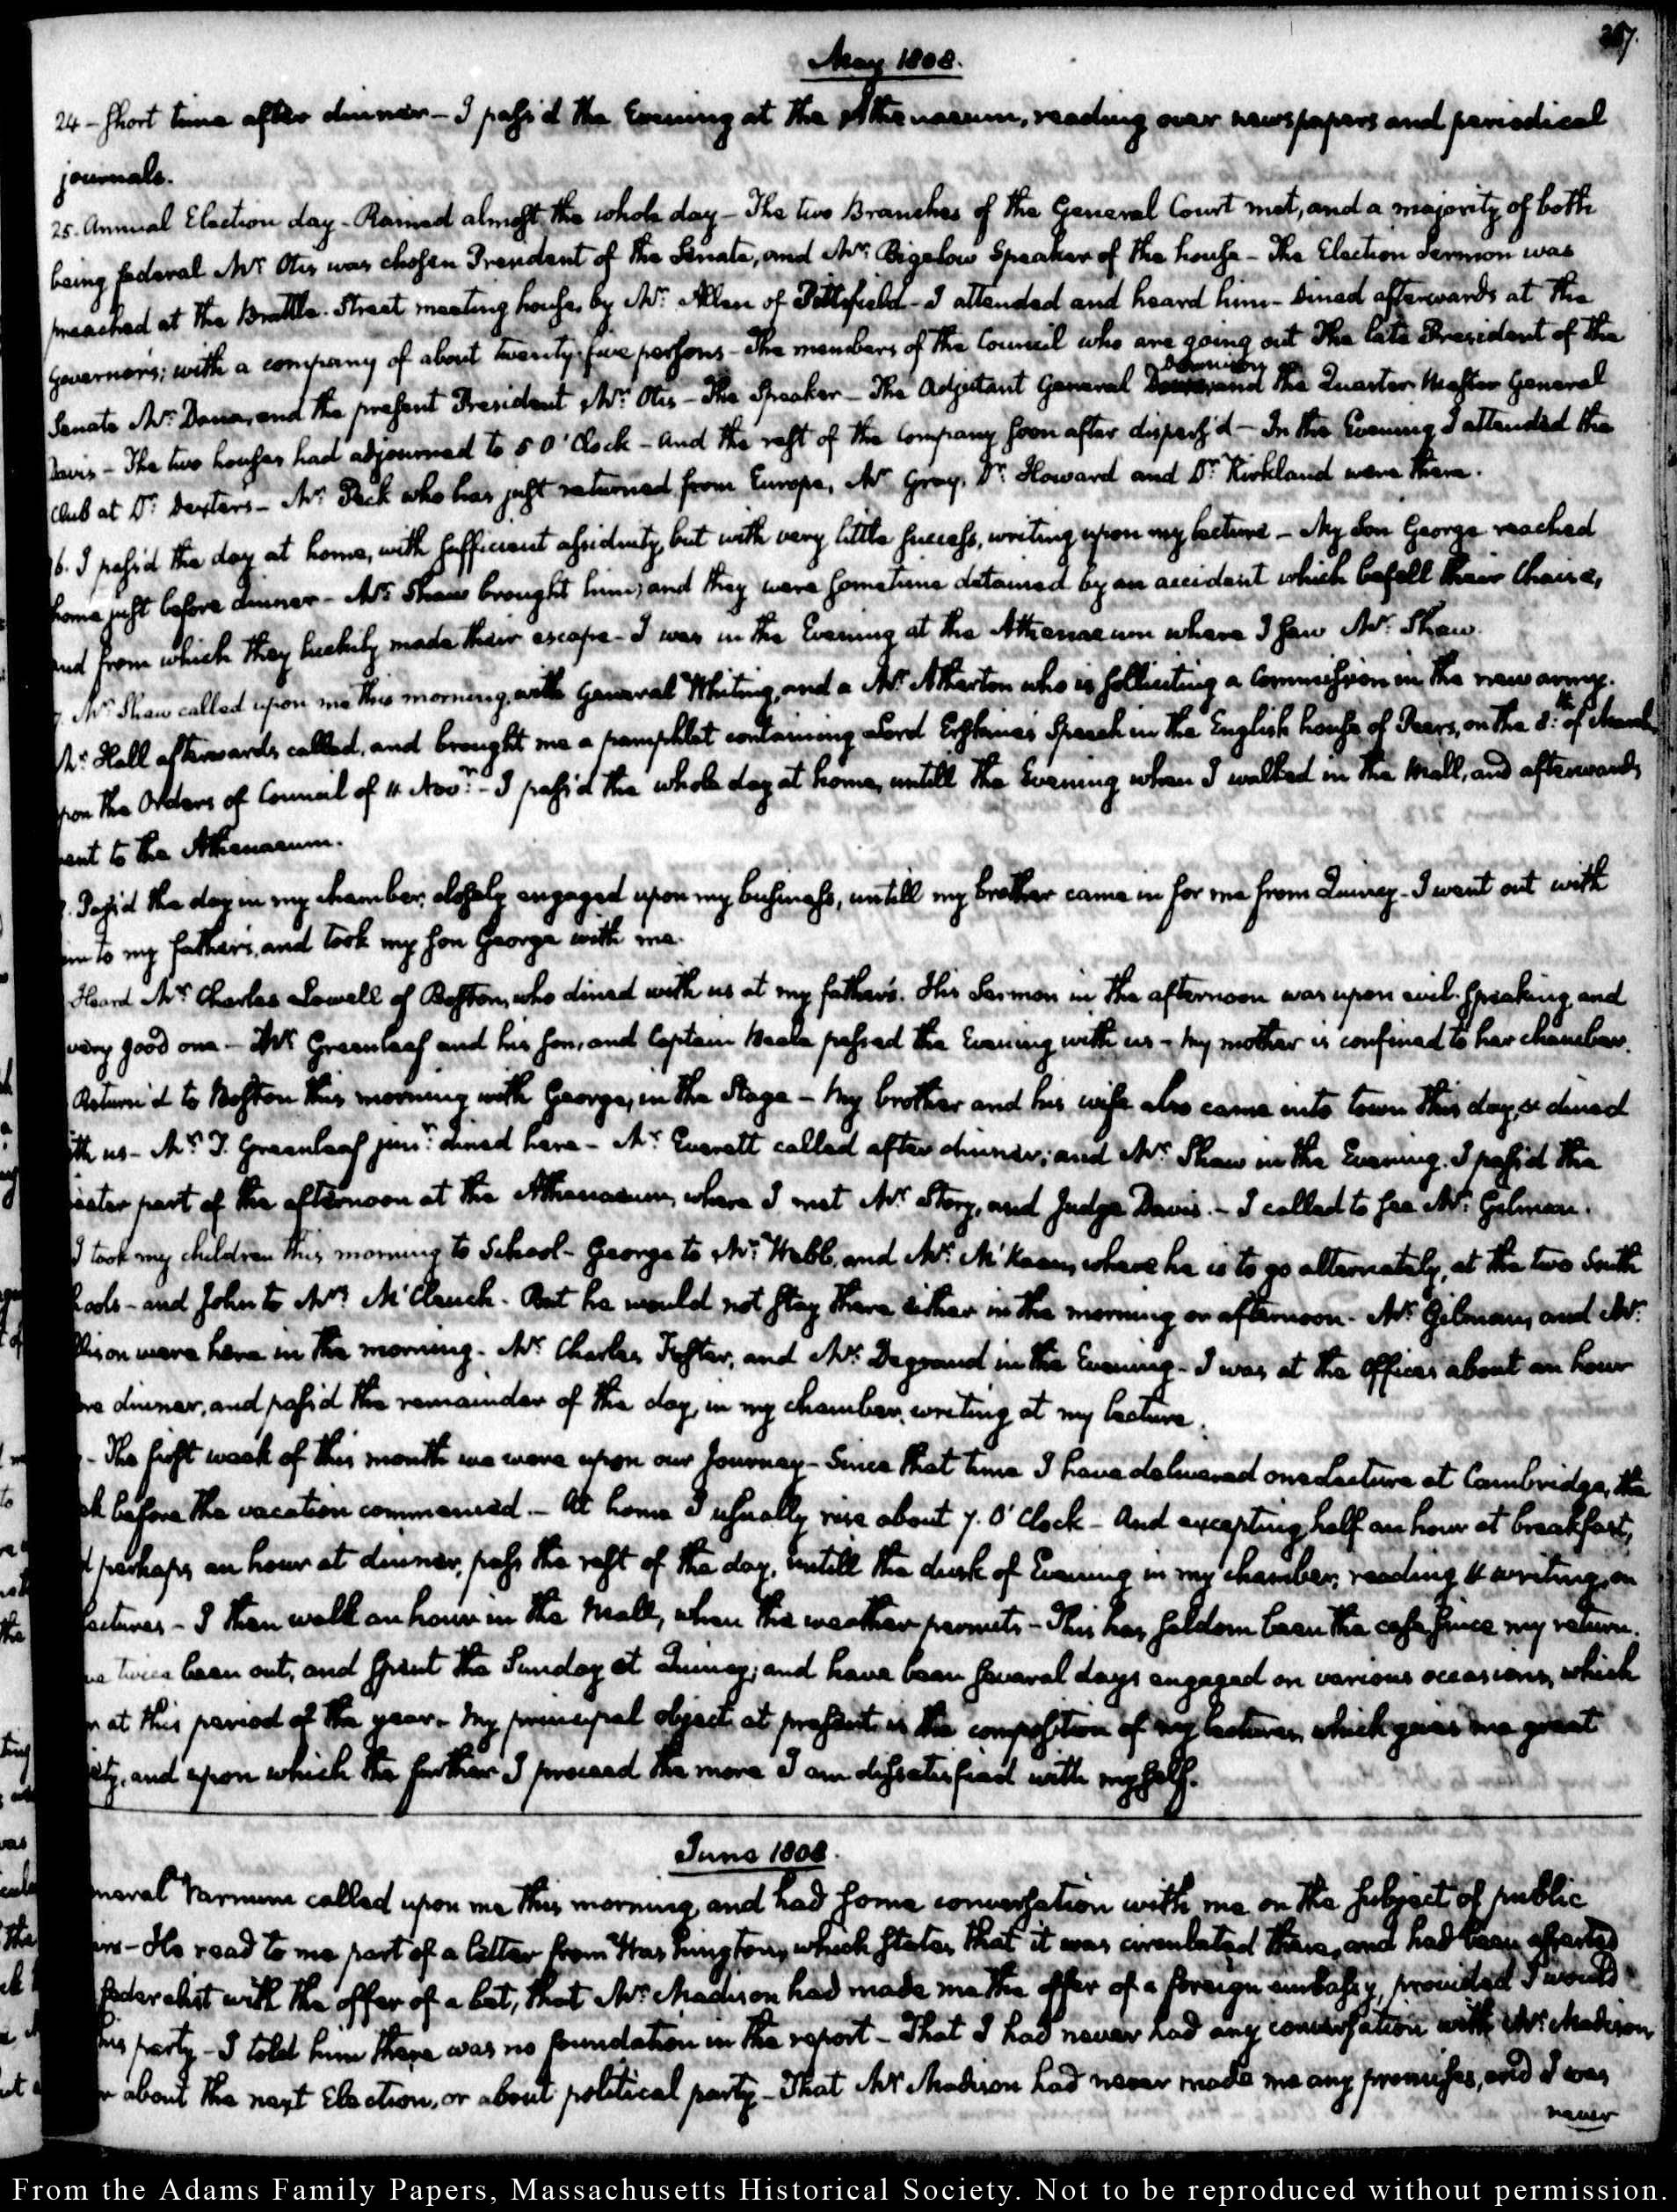 May 1808.
24 - short time after dinner - I pass'd the Evening at the Athenaeum, reading over newspapers and periodical
journals.
25. Annual Election day - Rained almost the whole day - The two Branches of the General Court met, and a majority of both
being federal Mr. Otis was chosen President of the Senate, and Mr. Bigelow Speaker of the house - The Election Sermon was
preached at the Brattle-Street meeting house, by Mr. Allen of Pittsfield - I attended and heard him - Dined afterwards at the
Governor's; with a company of about twenty-five persons - The members of the Council who are going out The late President of the
Senate Mr. Dana, and the present President Mr. Otis - The Speaker - The Adjutant General Donnison and the Quarter Master General
Davis - The two houses had adjourned to 5 O'Clock - And the rest of the Company soon after dispers'd - In the Evening I attended the
Club at Dr. Dexters - Mr. Peck who has just returned from Europe, Mr. Gray, Dr. Howard and Dr. Kirkland were there.
6. I pass'd the day at home, with sufficient assiduity, but with very little success, writing upon my lecture - My Son George reached
home just before dinner - Mr. Shaw brought him; and they were sometime detained by an accident which befell their Chaise,
and from which they luckily made their escape - I was in the Evening at the Athenaeum where I saw Mr. Shaw.
7. Mr. Shaw called upon me this morning, with General Whiting, and a Mr. Atherton who is solliciting a Commission in the new army.
Mr. Hall afterwards called, and brought me a pamphlet containing Lord Erskine's Speech in the English house of Peers, on the 8th. of March
upon the Orders of Council of 11 Novr. - I pass'd the whole day at home, untill the Evening when I walked in the Mall, and afterwards
went to the Athenaeum.
Pass'd the day in my chamber, closely engaged upon my business, untill my brother came in for me from Quincy - I went out with
him to my father's, and took my son George with me.
Heard Mr. Charles Lowell of Boston, who dined with us at my father's. His Sermon in the afternoon was upon evil-speaking, and
very good one - Mr. Greenleaf and his son, and Captain Beale passed the Evening with us - My mother is confined to her chamber.
Return'd to Boston this morning with George, in the Stage - My brother and his wife also came into town this day, & dined
with us - Mr. T. Greenleaf junr. dined here - Mr. Everett called after dinner; and Mr. Shaw in the Evening. I pass'd the
greater part of the afternoon at the Athenaeum, where I met Mr. Story, and Judge Davis. - I called to see Mr. Gilman.
I took my children this morning to School - George to Mr. Webb, and Mr. McKean, where he is to go alternately, at the two South
Schools - and John to Mrs. McClench. But he would not stay there either in the morning or afternoon. Mr. Gilman, and Mr.
were here in the morning. Mr. Charles Foster, and Mr. Degrand in the Evening - I was at the Office about an hour
before dinner, and pass'd the remainder of the day, in my chamber, writing at my lecture.
- The first week of this month we were upon our Journey - Since that time I have delivered one lecture at Cambridge, the
week before the vacation commenced. - At home I usually rise about 7. O'Clock - And excepting half an hour at breakfast,
and perhaps an hour at dinner, pass the rest of the day, untill the dusk of Evening in my chamber, reading & writing, on
lectures - I then walk an hour in the Mall, when the weather permits - This has seldom been the case since my return.
have twice been out, and spent the Sunday at Quincy; and have been several days engaged on various occasions, which
at this period of the year. My principal object at present is the composition of my lectures, which gives me great
anxiety, and upon which the further I proceed the more I am dissatisfied with myself.
June 1808.
General Varnum called upon me this morning, and had some conversation with me on the subject of public
affairs - He read to me part of a letter from Washington, which states that it was circulated there, and had been asserted
federalist with the offer of a bet, that Mr. Madison had made me the offer of a foreign embassy, provided I would
his party - I told him there was no foundation in the report - That I had never had any conversation with Mr. Madison
about the next Election, or about political party - That Mr. Madison had never made me any promises, and I was
never
From the Adams Family Papers, Massachusetts Historical Society. Not to be reproduced without permission.